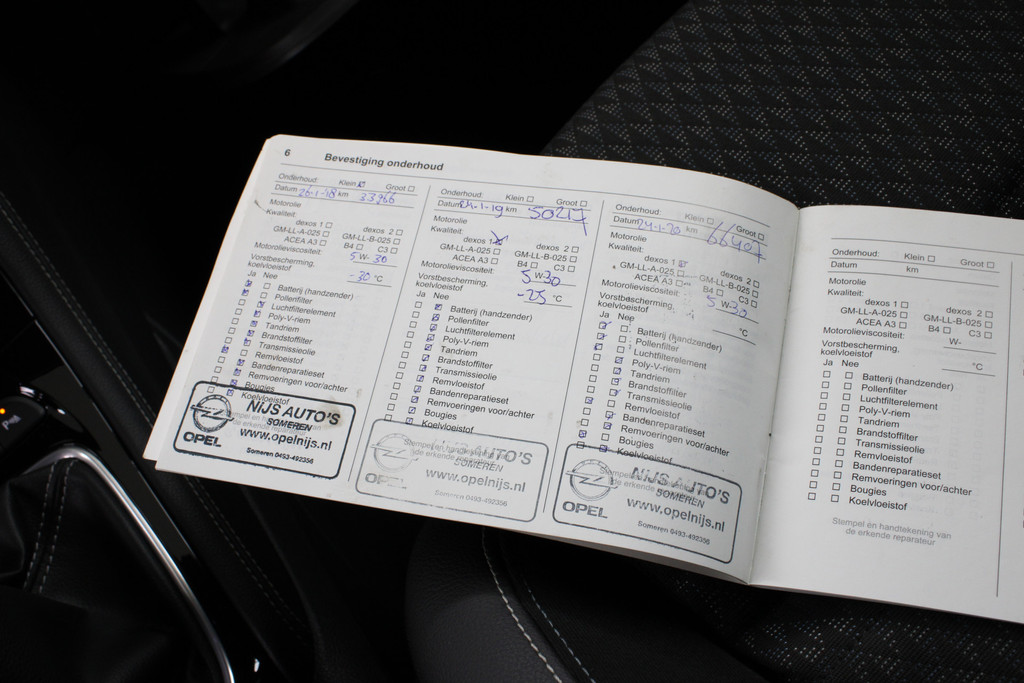 6 Bevestiging onderhoud
Onderhoud: Klein Groot
Datum 26-1-18 km 33966
Motorolie
Kwaliteit:
dexos 1 dexos 2
GM-LL-A-025 GM-LL-B-025
ACEA A3 B4 C3
Motorolieviscositeit: 5 W- 30
Vorstbescherming,
koelvloeistof -30 °C
Ja Nee
Batterij (handzender)
Pollenfilter
Luchtfilterelement
Poly-V-riem
Tandriem
Brandstoffilter
Transmissieolie
Remvloeistof
Bandenreparatieset
Remvoeringen voor/achter
Bougies
Koelvloeistof
NIJS AUTO'S
SOMEREN
www.opelnijs.nl
OPEL
Someren 0493-492356
Onderhoud: Klein Groot
Datum 24-1-19 km
Motorolie
Kwaliteit:
dexos 1 dexos 2
GM-LL-A-025 GM-LL-B-025
ACEA A3 B4 C3
Motorolieviscositeit: 5 W-30
Vorstbescherming,
koelvloeistof -25 °C
Ja Nee
Batterij (handzender)
Pollenfilter
Luchtfilterelement
Poly-V-riem
Tandriem
Brandstoffilter
Transmissieolie
Remvloeistof
Bandenreparatieset
Remvoeringen voor/achter
Bougies
Koelvloeistof
Stempel en handtekening van
de erkende reparateur
SOMEREN
www.opelnijs.nl
Someren 0493-492356
Onderhoud: Klein Groot
Datum 24-1-20 km
Motorolie
Kwaliteit:
dexos 1 dexos 2
GM-LL-A-025 GM-LL-B-025
ACEA A3 B4 C3
Motorolieviscositeit: 5 W-30
Vorstbescherming,
koelvloeistof °C
Ja Nee
Batterij (handzender)
Pollenfilter
Luchtfilterelement
Poly-V-riem
Tandriem
Brandstoffilter
Transmissieolie
Remvloeistof
Bandenreparatieset
Remvoeringen voor/achter
Bougies
Koelvloeistof
NIJS AUTO'S
SOMEREN
www.opelnijs.nl
OPEL
Someren 0493-492356
Onderhoud: Klein Groot
Datum km
Motorolie
Kwaliteit:
dexos 1 dexos 2
GM-LL-A-025 GM-LL-B-025
ACEA A3 B4 C3
Motorolieviscositeit: W-
Vorstbescherming,
koelvloeistof °C
Ja Nee
Batterij (handzender)
Pollenfilter
Luchtfilterelement
Poly-V-riem
Tandriem
Brandstoffilter
Transmissieolie
Remvloeistof
Bandenreparatieset
Remvoeringen voor/achter
Bougies
Koelvloeistof
Stempel en handtekening van
de erkende reparateur